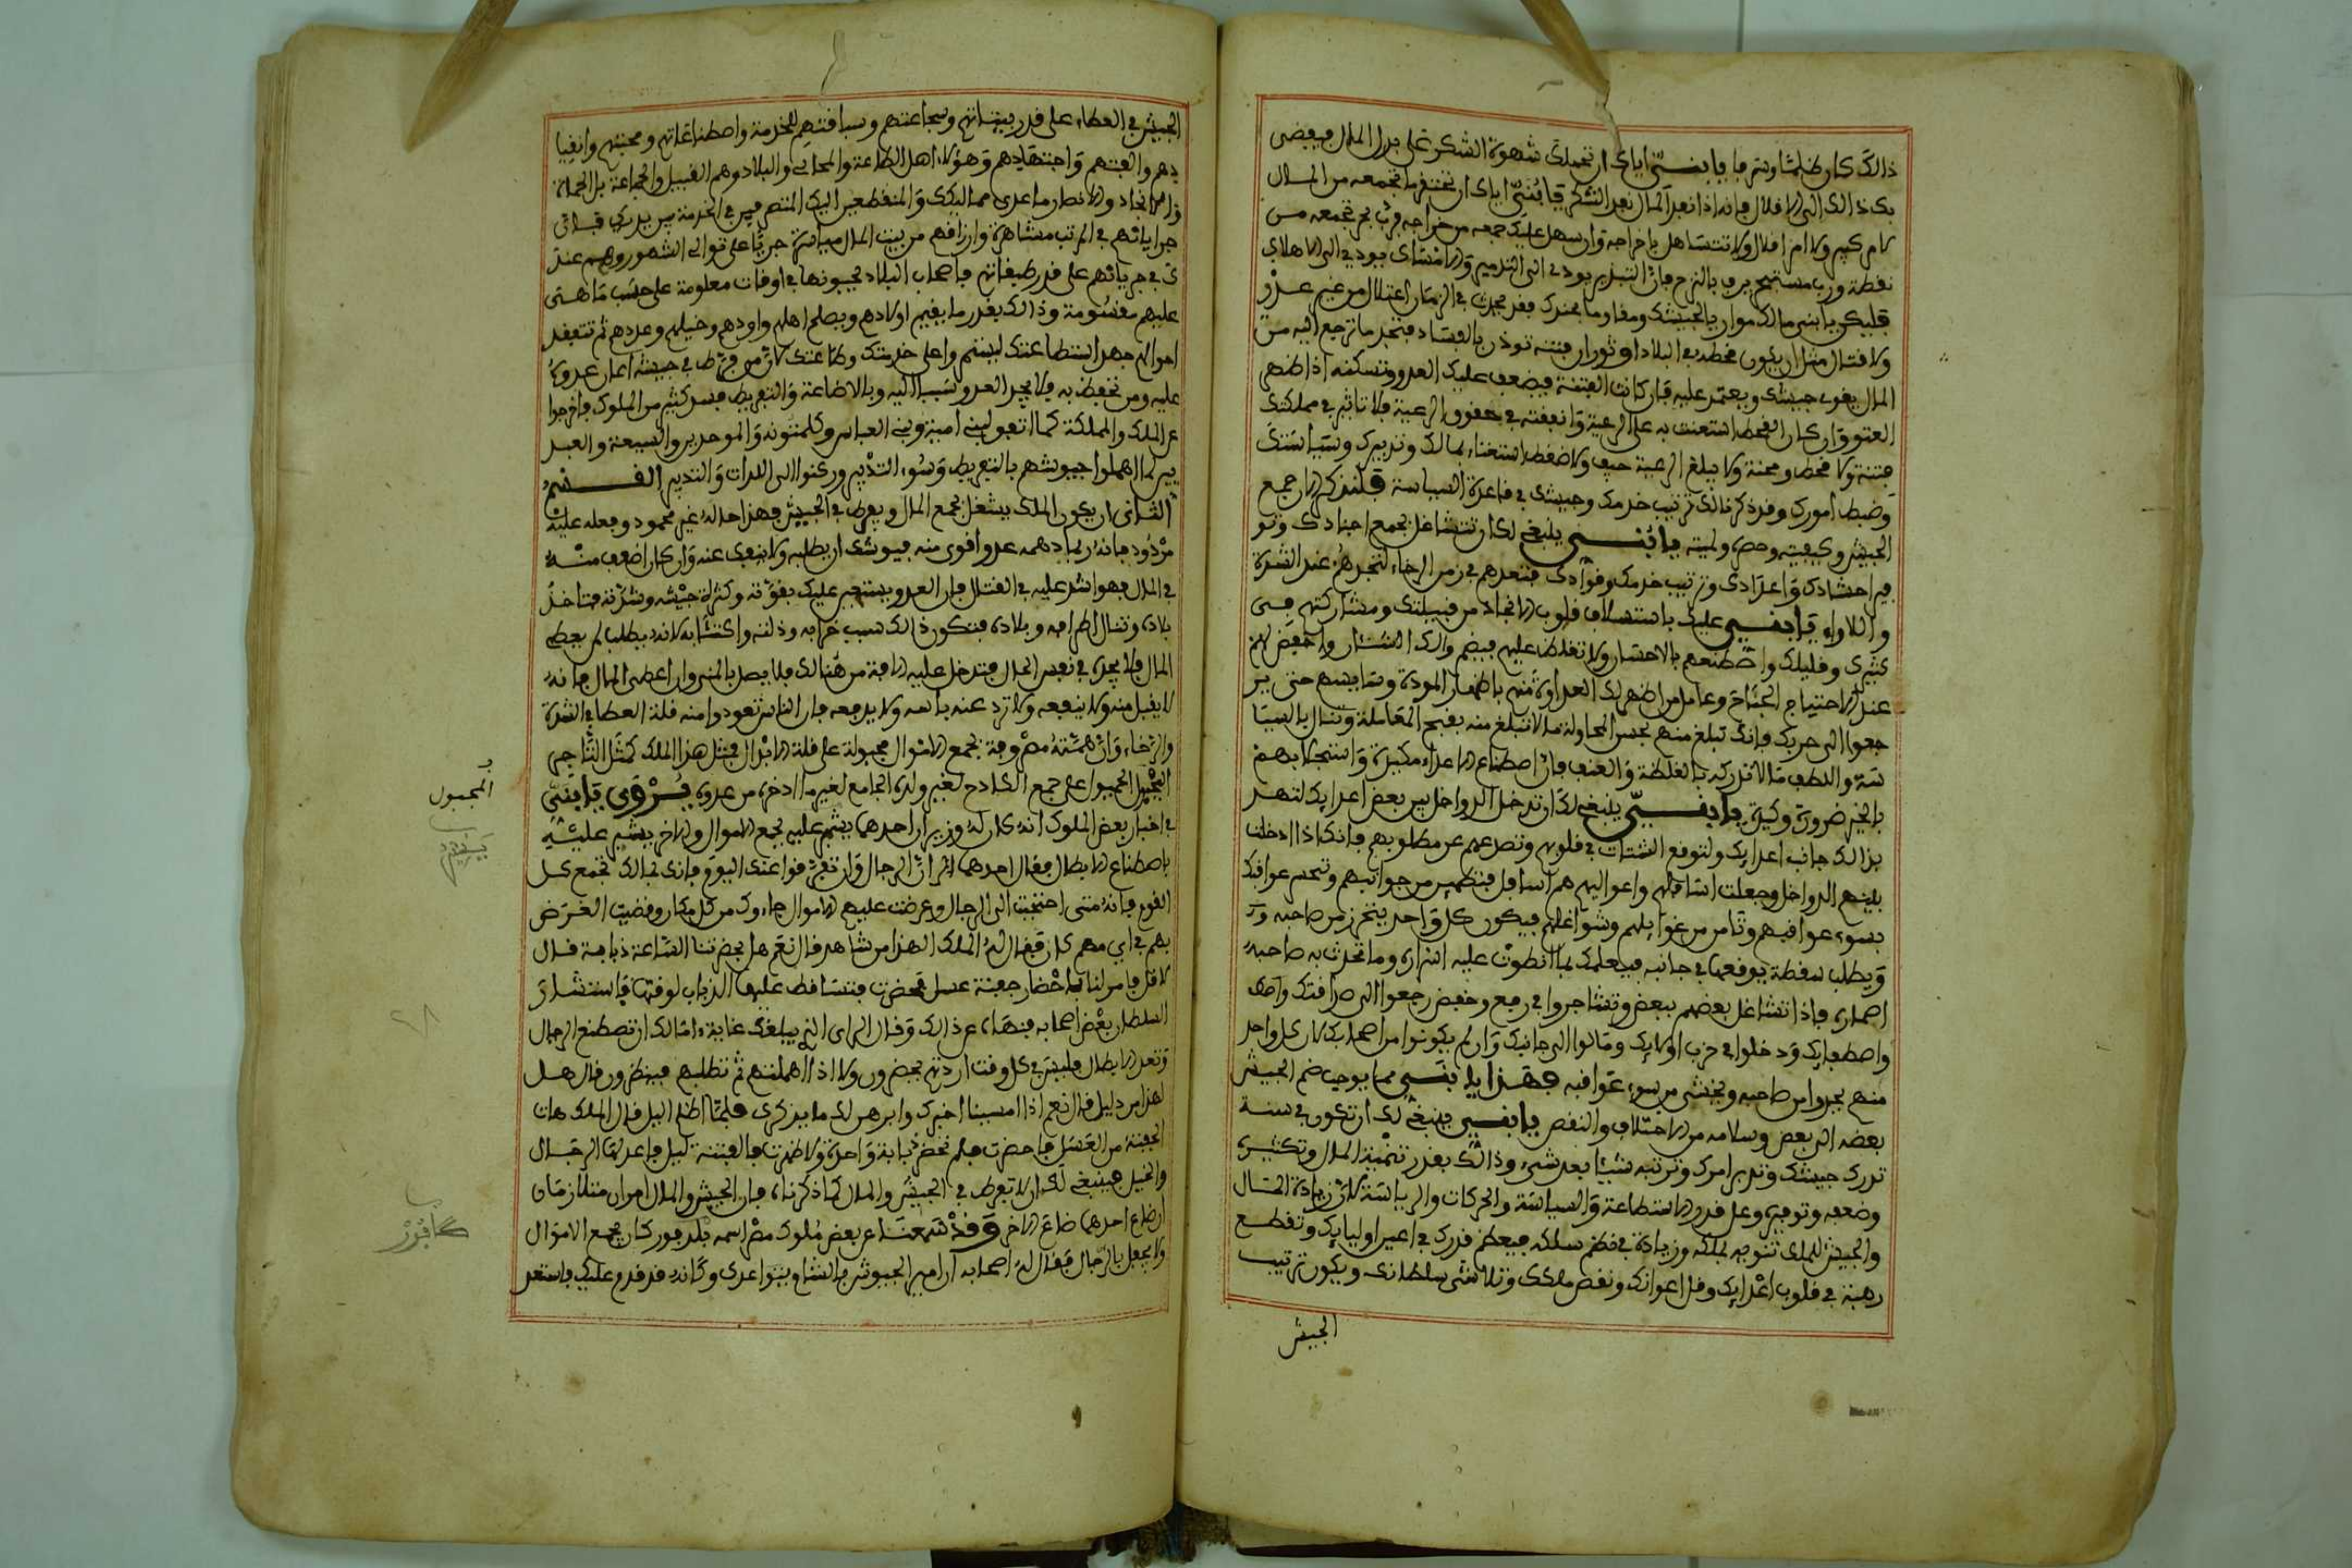 ذالك كان ظلما وشرها يا بنـي اياك ان تحملك شهوة الشكر على بذل المال فيفضى
بك ذالك الى الاقلال فانه اذا نفد المال نفد الشكر يا بني اياك ان تحتقر ما تجمعه من المـال
نقطة ورب مستبحر يرف بالنزح فان التبذير يودى الى التدمير والامساك يودى الى الاهلاك
فليكن يا بنى مالك موازيا لجيشك ومقاوما بجندك فقد يحدث في الزمان اعتلال من غير عدو
ولا قتال مثل ان يكون قحط في البلاد او ثوران فتنة توذن بالفساد فتجد ما ترجع اليه من
المال يقوى جيشك ويعتمد عليه فان كانت الفتنة فيضعف عليك العدو وتسكنه اذا ظهر
العتو وان كان القحط استعنت به على الرعية وانفقته في حقوق الرعية فلا تاثير في مملكتك
فتنة ولا قحط ومحنة ولا يبلغ الرعية حيف ولا ضغط استغناء بمالك وتدبيرك وسياستك
وضبط امورك وقد ذكرنا لك ترتيب خدمك وجيشك في قاعدة السياسة فلنذكر الان جمع
الجيش وكيفيته وحصره ولميته يا بنـي ينبغي لك ان تتشاغل بجمع اجنادك وتو
فير احشادك واعدادك وترتيب خدمك وقوادك فتعدهم في زمن الرخاء لتجدهم عند الشدة
واللاواء يا بنـي عليك باستيلاف قلوب الانجاد من قبيلتك ومشاركتهم فـى
كثيرك وقليلك واصطنعهم بالاحسان ولا تغلظ عليهم فيضم ذالك الشنـان واخفض لهم
عند الاحتياج الجناح وعامل من اظهر لك العداوة منهم باظهار المودة وسايسهم حتى ير
جعوا الى حزبك فانك تبلغ منهم بحسن المحاولة ما لا تبلغ منه بقبح المعاملة وتنال بالسيا
سة واللطف ما لا تدركه بالغلظة والعنف فان اصطناع الاعداء مكيدة واستجلابهـم
بالخير ضرورة وكيدة يا بنـي ينبغي لك ان تدخل الدواخل بين بعض اعدايك لتهـد
بذالك جانب اعدايك ولتوقع الشتات في قلوبهم وتصرعهم عن مطلوبهم فانك اذا ادخلت
بينهم الدواخل وجعلت اسافلهم واعواليهم هم اسافل فتظهر من جوانبهم وتحسن عواقبك
بسوء عواقبهم وتامن من غوايلهم وشواغلهم فيكون كل واحد يتحرز من صاحبه
ويطلب سقطة يوقعها في جانبه فيعلمك بما انطوت عليه اسراره وما تحدث به صاحبه
فاذا تشاغل بعضهم ببعض وتشاجروا في رفع وخفض رجعوا الى صداقتك
واصطفايك ودخلوا في حزب اوليايك ومالوا الى جانبك وان لم يكونوا من اصحابك لان كل واحد
منهم يحذر من صاحبه ويخشى من سوء عواقبه فهـذا يا بنـي مما يوجب ضم الجيش
بعضه الى بعض وسلامه من الاختلاف والنقص يا بنـي ينبغي لك ان تكون في سنة
تدرك جيشك وتدبر امرك وترتبه شيئا بعد شيء وذالك بقدر تنمية المال وتكثيره
وضعفه وتوفيره وعلى قدر الاستطاعة والسياسة والحركات والرياسة لان زيادة المـال
والجيش للملك تنويه لملكه وزيادة في نظم سلكه فيعظم قدرك في اعين اوليايك وتقطـع
رهبة في قلوب اعدايك وقل اعوانك ونقص ملكك وتلاشى سلطانك ويكون ترتيب
الجيش
الجيش في العطاء على قدر بيتاتهم وشجاعتهم وسباقتهم للخدمة واصطناعاتهم ومحبتهم وانقيا
دهم والفتهم واجتهادهم وهؤلاء اهل الطاعة والمحاب والبلاد وهم القبيل والجماعة بل الحماة
والانجاد والانصار ما عدى مماليكك والمنقطعين اليك المتصرفين في الخدمة بين يديك فـان
جراياتهم في المرتب مشاهرة وارزاقهم من بيت المال مياسرة جريا على توالى الشهور وهم عند
ك في جرياتهم على قدر طبقاتهم فاصحاب البلاد يجبونها في اوقات معلومة على حسب ما هـى
عليهم مقسومة وذالك بقدر ما يقيم اولادهم ويصلح اهلهم واودهم وخيلهم وعددهم ثم تتفقد
احوالهم جهد استطاعتك ليستمروا على خدمتك وطاعتك لان من فرط في جيشه اعان عدوه
عليه ومن تحفظ به فلا يجد العدو سببا اليه وبالاضاعة والتفريط فسد كثير من الملوك فاخرجوا
عن الملك والمملكة كما اتفق لبنى امية وبنى العباس وكلمتونه والموحدين والشيعة والعبـد
يين لما اهملوا جيوشهم بالتفريط وسوء التدبير وركنوا الى اللذات والتدبير القـسـم
الثانى ان يكون الملك يشغل بجمع المال ويفرط في الجيش فهذا حاله غير محمود وفعله عليه
مردود فانه ربما دهمه عدو اقوى منه فيوشك ان يطلبه ولا ينفك عنه وان كان اضعف منـه
في المال فهو اشد عليه في القتال فان العدو يستجير عليك بقوته وكثرة جيشه وشدته فتاخذ
بلاده وتنال اطرافه وبلاده فتكون ذالك سبب خرابه وذلته واكتئابه لانه يطلب لم يعطه
المال فلا يجده في نفس الحال فتدخل عليه الافة من هنالك فلا يصل بالمنى وان اعطى المال فانه
لا يقبل منه ولا ينفعه ولا ترد عنه باسه ولا يدفعه فان الناس تعودوا منه قلة العطا في الشدة
والرخاء وان همته مصروفة بجمع الاموال مجبولة على قلة الابذال فمثل هذا الملك كمثل التاجر
البخيل المجبول على جمع الكادح لغير ولده الجامع لغير ما ادخره من عدوه يـروى يا بنـى
في اخبار بعض الملوك انه كان له وزيران احدهما يشير عليه بجمع الاموال والاخر يشير عليـه
باصطناع الابطال فقال احدهما الران الرجال وان تفرقوا عنك اليوم فانك بمالك تجمع كـل
القوم فانه متى احتجت الى الرجال وعرضت عليهم الاموال جاءوك من كل مكان وقضيت الغرض
بهم في اي مهم كان فقال له الملك الهذا من شاهد قال نعم هل بحضرتنا الساعة ذبابة قـال
لا قل فامر لنا باحضار جفنة عسل فحضرت فتساقط عليها الذباب لوقتها فاستشار
السلطان بعض اصحابه فنهاه عن ذالك وقال الراى الذي يبلغك غاية امالك ان تصطنع الرجال
وتعد الابطال فليس في كل وقت اردتهم يحضرون ولا اذا اهملتهم ثم تطلبهم فينظرون قال هـل
لهذا من دليل قال نعم اذا امسينا اخبرك وابرهن لك ما يذكرى فلما اظلم اليل قال الملك هات
الجفنة من العسل فاحضرت فلم تحضر ذبابة واحدة ولا ظهرت فالفتنة ليل فاعد لها الرجـال
والخيل فينبغي لك ان لا تفرط في الجيش والمال كما ذكرناه فان الجيش والمال امران متلازمـان
ان ضاع احدهما ضاع الاخر وقد سمعنـا عن بعض ملوك مصر اسمه بلدفور كان يجمع الاموال
ولا يحفل بالرجال فقال له اصحابه ان امير الجيوش بالشام ينوا عدى وكانه قد قدم عليك فاستعد
المجبول
كافور